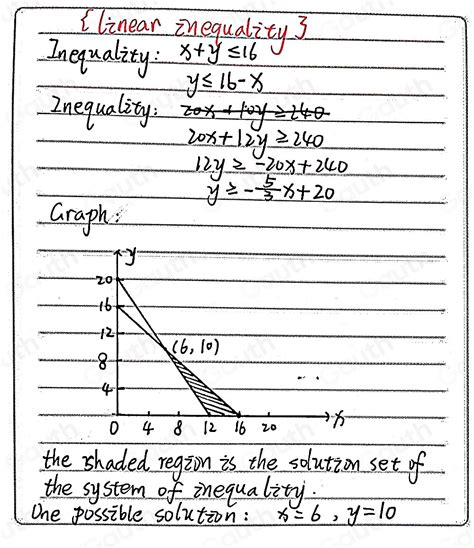 {linear inequality}
Inequality: x+y ≤16
y≤ 16-x
Inequality: 20x+10y≥240
20x+12y ≥240
12y ≥ -20x+240
y≥ -5/3x+20
Graph:
y
20
16
12
(6,10)
8
4
0 4 8 12 16 20 x
the shaded region is the solution set of
the system of inequality.
One possible solution: x=6, y=10